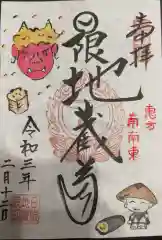 奉拝
恵方
南南東
地蔵尊
令和三年
二月十二日